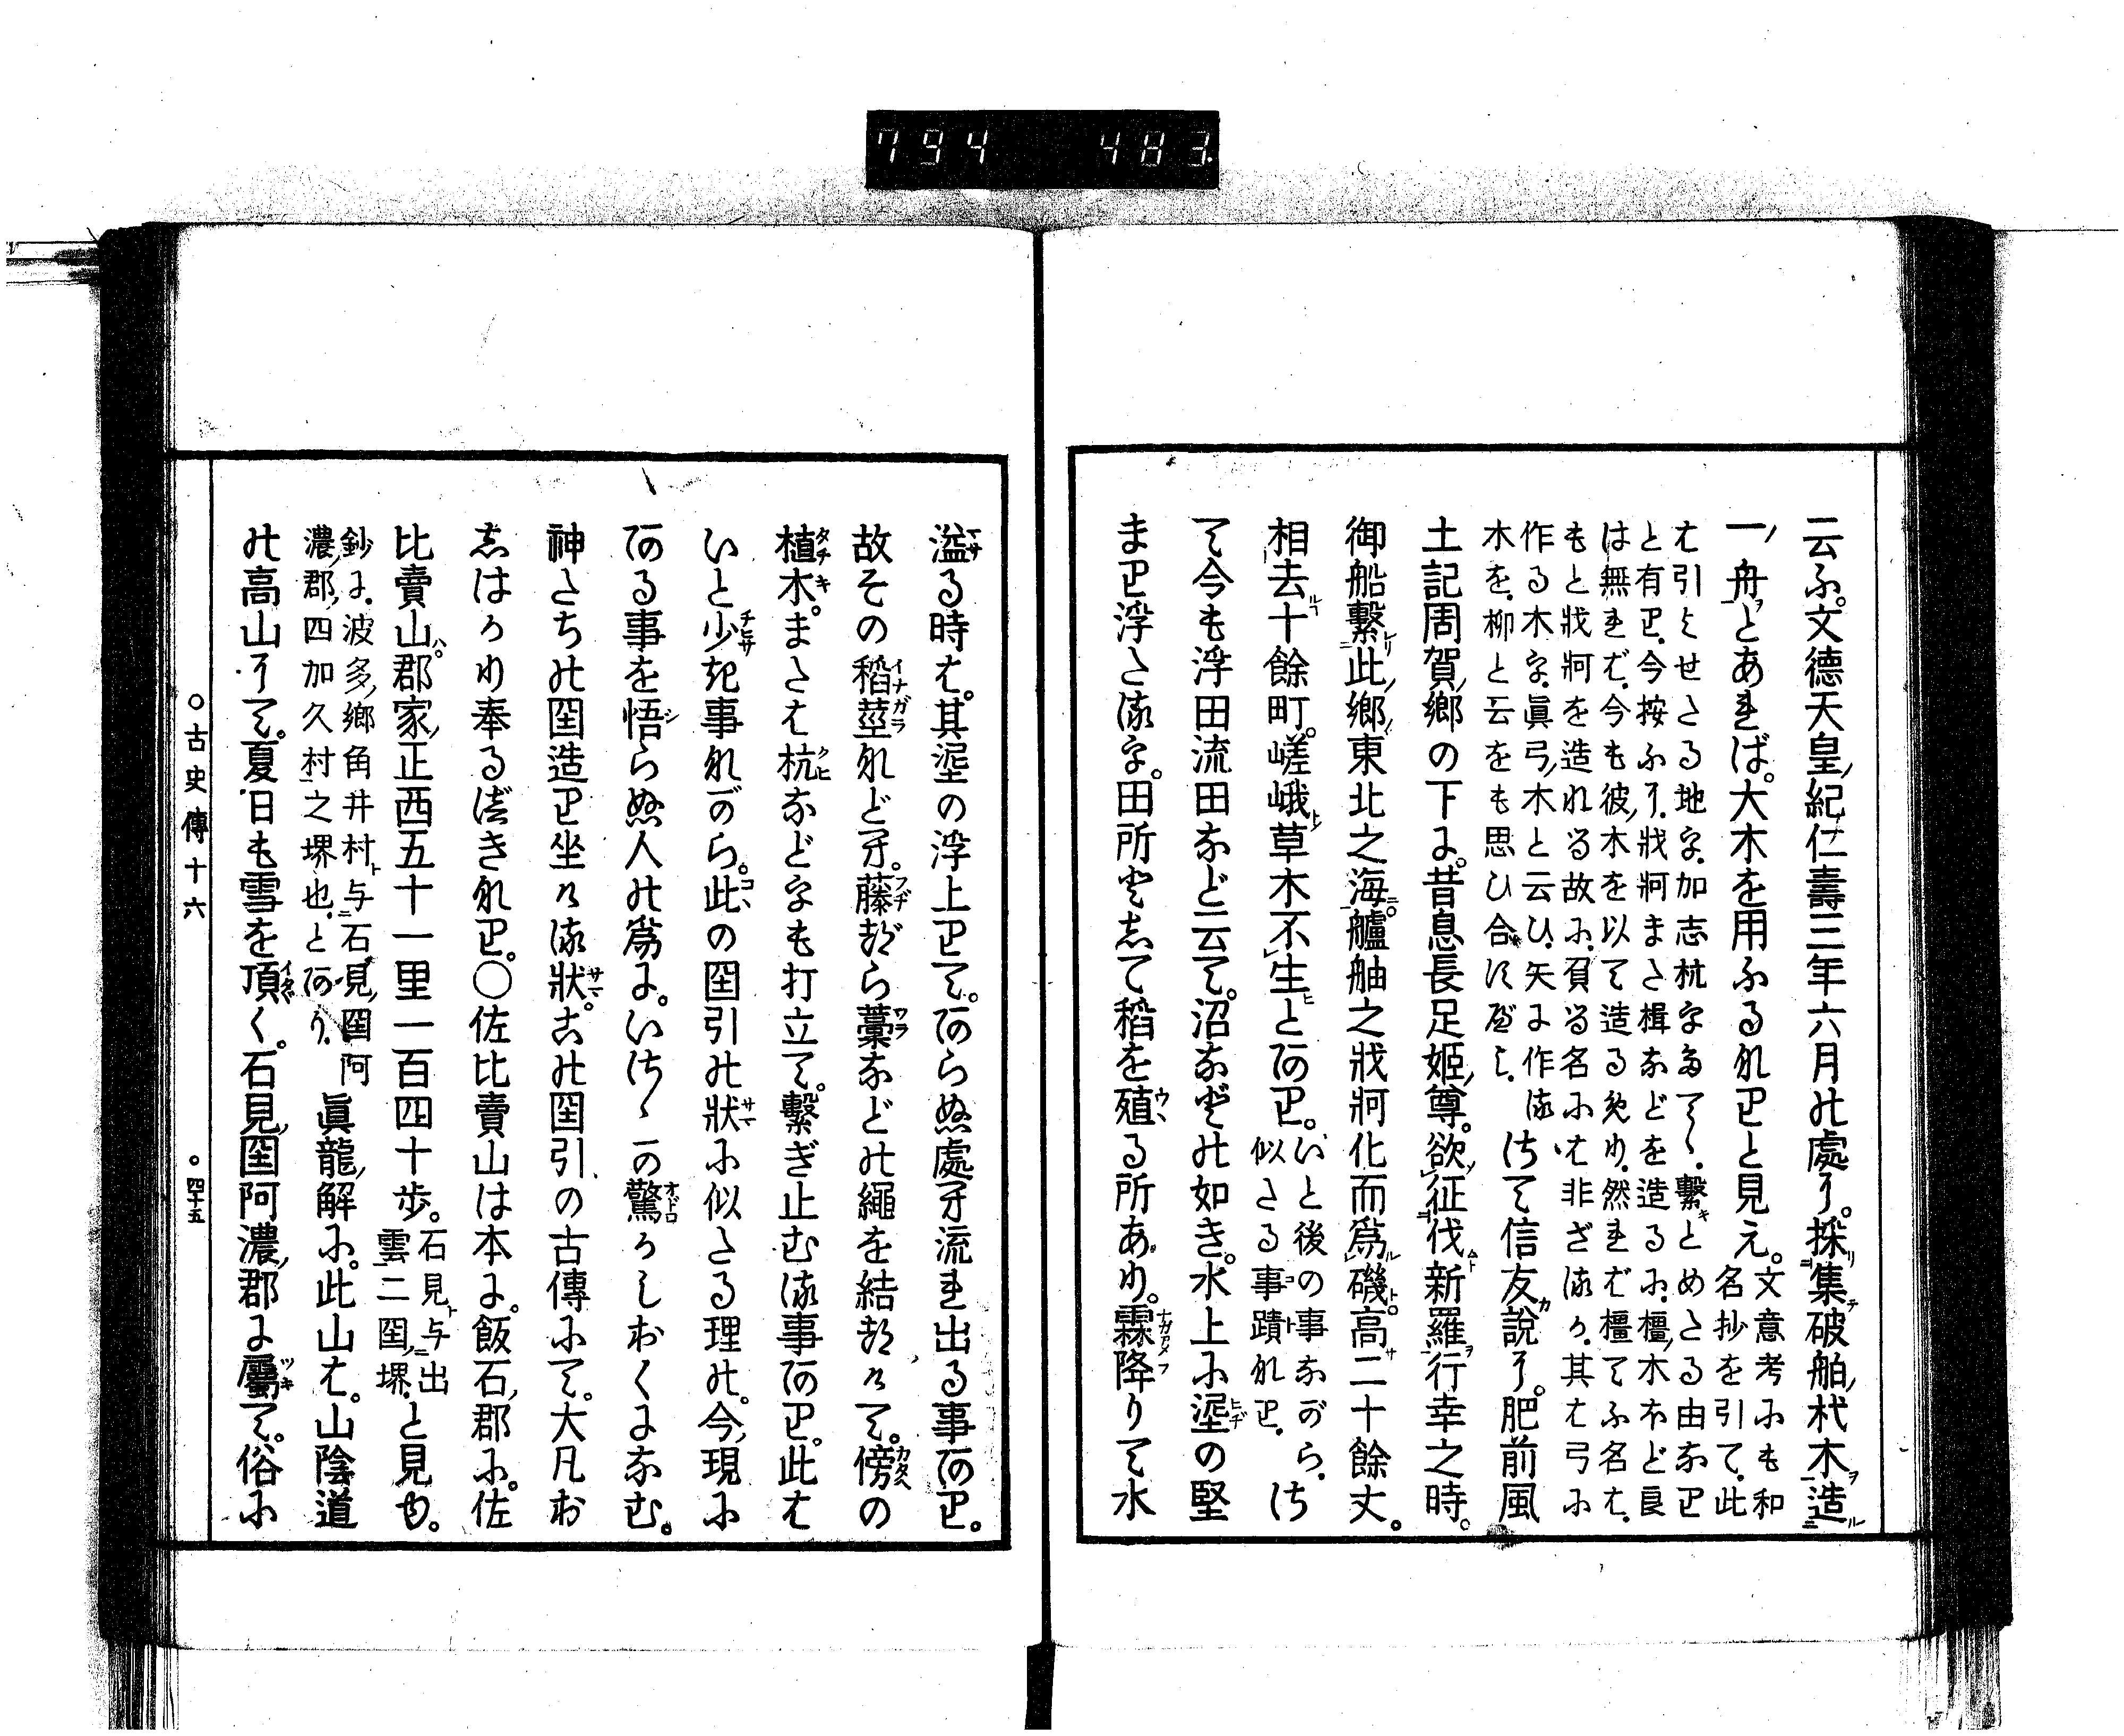 794 483
云ふ。文德天皇紀仁壽三年六月の處に。採集破舶材木造
一舟とあれば。大木を用ふるなりと見え。文意考にも和
名抄を引て。此
は引よせたる地を。加志杭をあてゝ。繫とめたる由なり
と有り。今按ふに。戕牁また楫などを造るに。橿木ほど良
は無れば。今も彼木を以て造るめり。然れば橿てふ名は。
もと戕牁を造れる故に。負る名には非ざるか。其は弓に
作る木を。眞弓木と云ひ。矢に作る
木を。柳と云をも思ひ合すべし。
さて信友說に。肥前風
土記周賀鄕の下に。昔息長足姬尊。欲征伐新羅行幸之時。
御船繫此鄕東北之海。艫舳之戕牁化而爲磯。高二十餘丈。
相去十餘町。嵯峨草木不生とあり。いと後の事ながら。
似たる事蹟なり。
さ
て今も浮田流田など云て。沼などの如き。水上に埿の堅
まり浮たるを。田所として稻を殖る所あり。霖降りて水
溢る時は。其埿の浮上りて。あらぬ處に流れ出る事あり。
故その稻莖などに。藤かづら藁などの繩を結かけて。傍の
植木。または杭などをも打立て。繫ぎ止むる事あり。此は
いと少き事ながら。此の国引の狀に似たる理の。今現に
ある事を悟らぬ人の爲に。いさゝか驚かしおくになむ。
神たちの国造り坐ける狀。古の国引の古傳にて。大凡お
しはかり奉るべきなり。○佐比賣山は本に。飯石郡に。佐
比賣山。郡家正西五十一里一百四十步。石見与出
雲二国堺。
と見ゆ。
鈔に。波多鄕角井村与石見国阿
濃郡四加久村之堺也とあり。
眞龍解に。此山は。山陰道
の高山にて。夏日も雪を頂く。石見国阿濃郡に屬て。俗に
○古史傳十六
○四十五